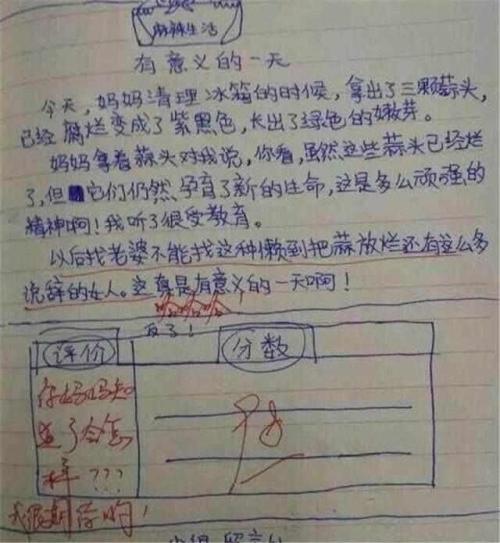 麻辣生活
有意义的一天
今天,妈妈清理冰箱的时候,拿出了三颗蒜头,
已经腐烂变成了紫黑色,长出了绿色的嫩芽。
妈妈拿着蒜头对我说,你看,虽然这些蒜头已经烂
了,但它们仍然孕育了新的生命,这是多么顽强的
精神啊!我听了很受教育。
以后找老婆不能找这种懒到把蒜放烂还有这么多
说辞的女人。这真是有意义的一天啊!
哈哈哈
反了!
评价
分数
你妈妈知
道了会怎
样???
优
我很期待哟!